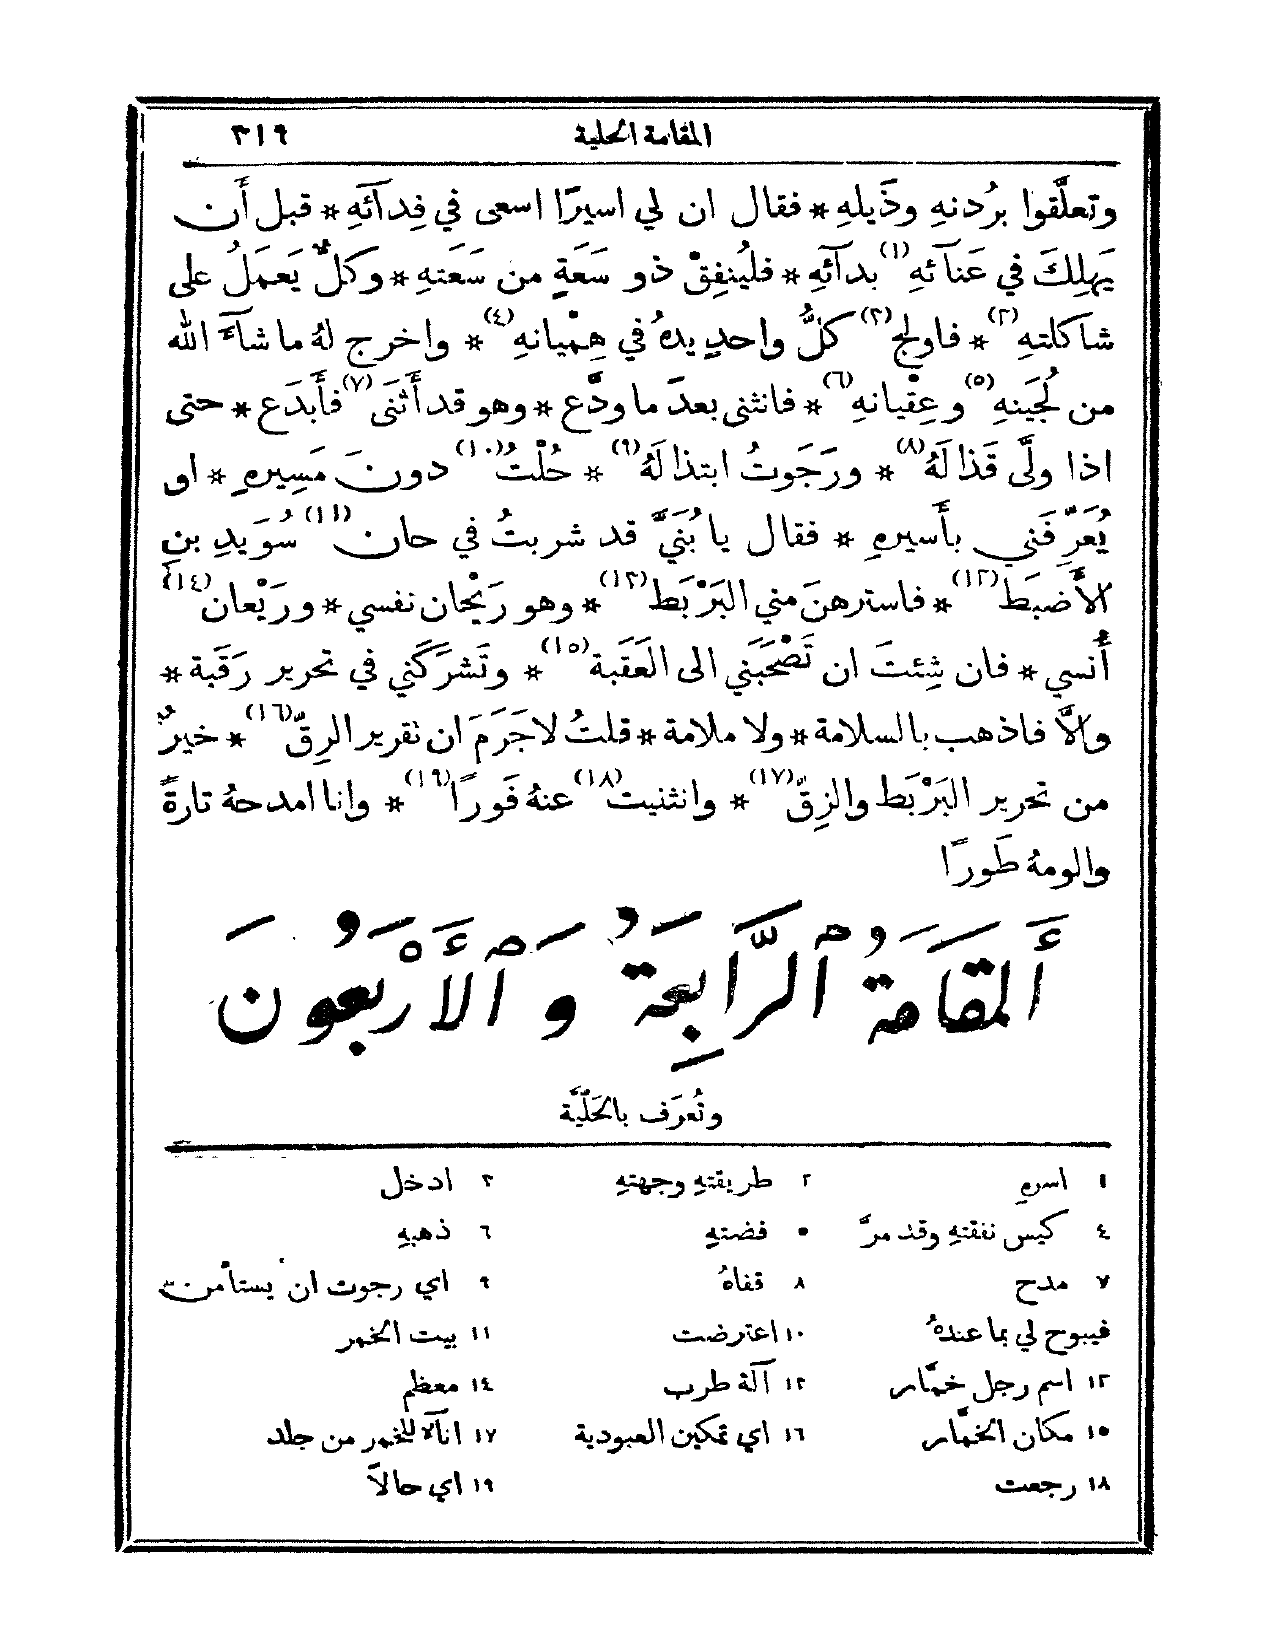 المقامة الحلبية ٣١٩
وتعلَّقوا بِرُدنهِ وذَيلهِ * فقال ان لي اسيرًا اسعى في فِدآئهِ * قبل أَن
يَهلِكَ في عَنآئهِ (١) بدآئهِ * فليُنفِقْ ذو سَعةٍ من سَعَتهِ * وكلٌّ يَعمَلُ على
شاكلتهِ (٢) * فاولج (٣) كلُّ واحدٍ يدهُ في هِمْيانهِ (٤) * واخرج لهُ ما شآءَ الله
من لُجَينهِ (٥) وعِقْيانهِ (٦) * فانثنى بعدَ ما ودَّع * وهو قد أَثنَى (٧) فأَبدَع * حتى
اذا ولَّى قَذالَهُ (٨) * ورَجَوتُ ابتذالَهُ (٩) * حُلْتُ (١٠) دون مَسِيرهِ * او
يُعرِّفَني بأَسيرهِ * فقال يا بُنَيَّ قد شربتُ في حان (١١) سُوَيدِ بن
الأَضبَط (١٢) * فاسترهنَ مني البَرْبَط (١٣) * وهو رَيْحان نفسي * ورَيْعان (١٤)
أُنسي * فان شِئتَ ان تَصْحَبَني الى العَقَبة (١٥) * وتَشرَكَني في تحرير رَقَبة *
والَّا فاذهب بالسلامة * ولا ملامة * قلتُ لا جَرَمَ ان تقرير الرِقّ (١٦) * خيرٌ
من تحرير البَرْبَط والزِقّ (١٧) * وانثنيت (١٨) عنهُ فَورًا (١٩) * وانا امدحهُ تارةً
والومهُ طَورًا
أَلمَقَامَةُ ٱلرَّابِعَةُ وَٱلْأَرْبَعُونَ
وتُعرَف بالحَلَبيَّة
١ اسرهِ ٢ طريقتهِ وجهتهِ ٣ ادخل
٤ كيس نفقتهِ وقد مرَّ ٥ فضتهِ ٦ ذهبهِ
٧ مدح ٨ قفاهُ ٩ اي رجوت ان يستأمن
فيبوح لي بما عندهُ ١٠ اعترضت ١١ بيت الخمر
١٢ اسم رجل خمَّار ١٣ آلة طرب ١٤ معظم
١٥ مكان الخمَّار ١٦ اي تمكين العبودية ١٧ انآءٌ للخمر من جلد
١٨ رجعت ١٩ اي حالًا